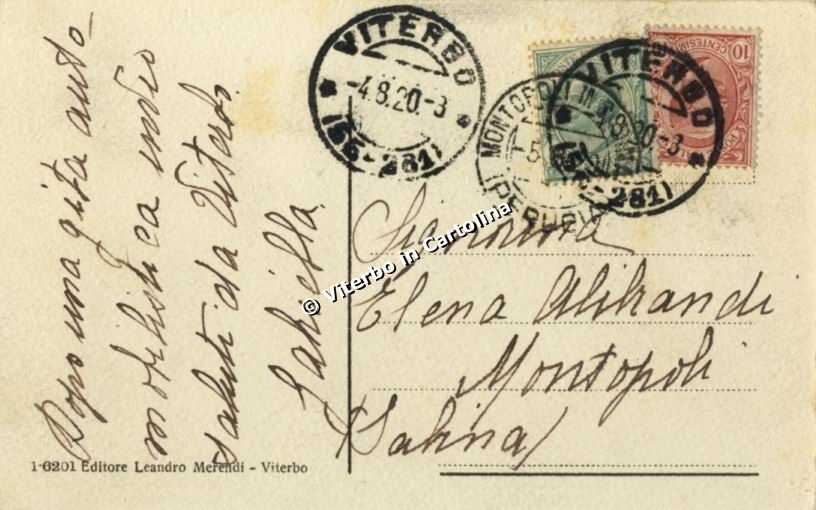 Dopo una gita auto-
mobilistica invio
saluti da Viterbo
Gabriella
VITERBO
-4.8.20.-3
(56-281)
VITERBO
4.8.20.-3
(56-281)
MONTOPOLI
(PERUGIA)
10
CENTESIMI
Signorina
Elena Alibrandi
Montopoli
(Sabina)
© Viterbo in Cartolina
1-6201 Editore Leandro Merendi - Viterbo